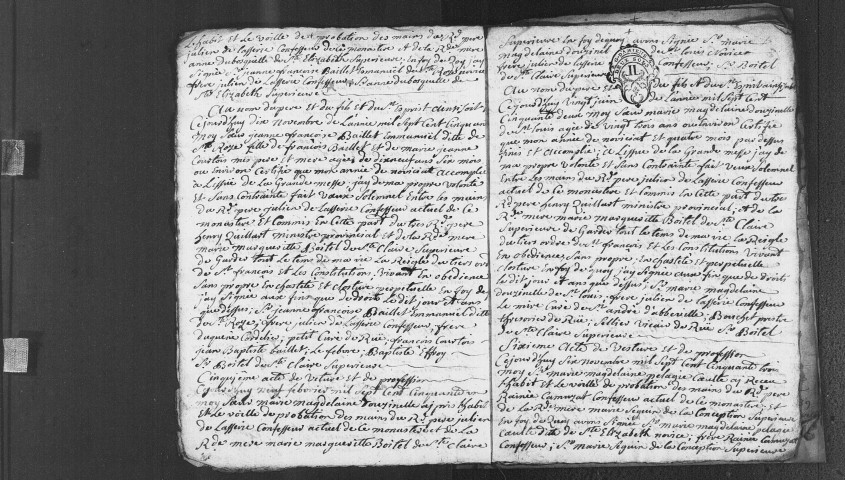 L'habit et le voille de probation des mains du Rd. pere
julien de Lasserie Confesseur de ce monastre et de la Rde. mere
anne dubosquille de Ste. Elizabeth Superieure En foy de quoy jay
Signée Sr. jeanne françoise Baillet Emmanuel de Ste. Roze novice
frere julien de Lasserie Confesseur Sr. anne dubosquille de
Ste. Elizabeth Superieure
Au nom du pere et du fil et du St. Esprit ainsi soit il
Cejourdhuy dix Novembre de Lannée mil Sept Cent Cinquante un
moy Sœur jeanne françoise Baillet Emmanuel ditte de
Ste. Roze fille de françois Baillet et de marie jeanne
Courtois mes pere et mere agée de dixneuf ans six mois
ou Environ Certifie que mon année de noviciat accomplie
a Lissüe de La Grande messe jay de ma propre volonté
Et Sans Contrainte fait vœux Solemnel Entre les mains
du Rd. pere julien de Lasserie Confesseur actuel de ce
monastre et Commis En cette part du tres Rd. pere
henry Quillart ministre provincial et de la Rde. mere
marie margueritte Boitel de Ste. Claire Superieure
de Garder tout le tems de ma vie La Reigle du tiers ordre
de St. françois et Les Constitutions. Vivant En obedience
Sans propre En chasteté et closture perpetuelle En foy de quoy
jay Signée aux fins que de droit. Le dit jour et ans
que dessus. Sr. jeanne françoise Baillet Emmanuel ditte
de Ste. Roze, frere julien de Lasserie Confesseur, frere
daguene Cordelier, petit Curé de Rüe, françois Courtois
jean Baptiste baillet, Le febvre, Baptiste Effroy
Sr. Boitel de Ste. Claire Superieure
Cinqyiéme acte de Véture Et de profession
Cejourdhuy neuf febvrier mil Sept Cent Cinquante un
moy Sœur marie magdelaine Douzinelle ay pris Lhabit
Et Le voille de probation des mains du Rd. pere julien
de Lasserie Confesseur actuel de ce monastre et de La
Rde. mere marie marguerite Boitel de Ste. Claire
Superieure En foy de quoy avons Signée Sr. marie
magdelaine douzinel de St. Louis Novice
Confesseur, Sr. Boitel
de Ste. Claire Superieure
Au nom du pere et du fil et du St. Esprit ainsi soit il
Cejourdhuy Vingt juin de Lannée mil Sept Cent
Cinquante deux moy Sœur marie magdelaine douzinelle
de St. Louis agée de Vingt trois ans ou Environ Certifie
que mon année de noviciat et quatre mois par dessus
finis et accomplie; a Lissüe de La Grande messe jay de
ma propre Volonté et Sans Contrainte fait Vœux Solemnel
Entre Les mains du Rd. pere julien de Lasserie Confesseur
actuel de ce monastere et Commis En cette part du tres
Rd. pere henry Quillart ministre provincial; et de La
Rde. mere marie marguerite Boitel de Ste. Claire
Superieure de Garder tout Le tems de ma vie La Reigle
du tiers ordre de St. françois et Les Constitutions Vivant
En obedience, Sans propre En chasteté et perpetuelle
closture En foy de quoy jay Signée aux fins que de droits
Le dit jour et ans que dessus: Sr. marie magdelaine
douzinelle de St. Louis, frere julien de Lasserie Confesseur
Le mire Curé de St. andré d'abbeville; Bouchet prestre
tresorier de Rüe; Sellier Vicair de Rüe Sr. Boitel
de Ste. Claire Superieure
Sixieme Acte de Vesture et de profession
Cejourdhuy Six novembre mil Sept Cent Cinquante trois
moy Sr. marie magdelaine pelagie Caulle ay Receu
Lhabit et Le voille de probation des mains du Rd. pere
Rainée Camuzat Confesseur actuel de ce monastre, et
de La Rde. mere marie Seguin de La Conception Superieure
En foy de quoy avons Signée Sr. marie magdelaine pelagie
Caulle dite de Ste. Elizabeth novice; frère Rainée Camuzat
Confesseur, Sr. marie Seguin de La Conception Superieure